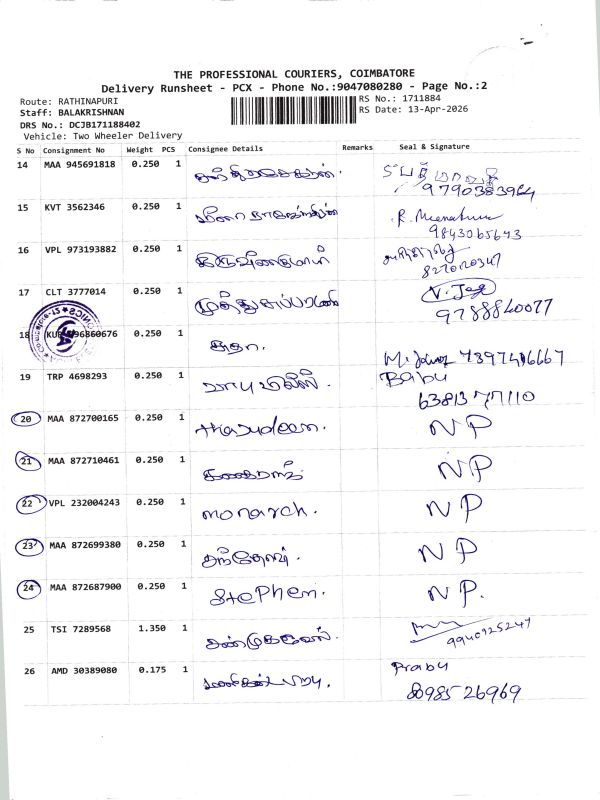 THE PROFESSIONAL COURIERS, COIMBATORE
Delivery Runsheet - PCX - Phone No.:9047080280 - Page No.:2
Route: RATHINAPURI RS No.: 1711884
Staff: BALAKRISHNAN RS Date: 13-Apr-2026
DRS No.: DCJB171188402
Vehicle: Two Wheeler Delivery
S No Consignment No Weight PCS Consignee Details Remarks Seal & Signature
14 MAA 945691818 0.250 1
9790383964
15 KVT 3562346 0.250 1 R. Meenakumari
9843065643
16 VPL 973193882 0.250 1
17 CLT 3777014 0.250 1 முத்துசுப்பரமணி
9788840077
18 0.250 1 சுதா. 7397416667
19 TRP 4698293 0.250 1 பாபு Babu
6381377110
20 MAA 872700165 0.250 1 thajudeen. NP
21 MAA 872710461 0.250 1 NP
22 VPL 232004243 0.250 1 monarch. NP
23 MAA 872699380 0.250 1 சந்தோஷ். NP
24 MAA 872687900 0.250 1 Stephen. NP.
25 TSI 7289568 1.350 1 சண்முகவேல்.
9940925247
26 AMD 30389080 0.175 1 Prabu